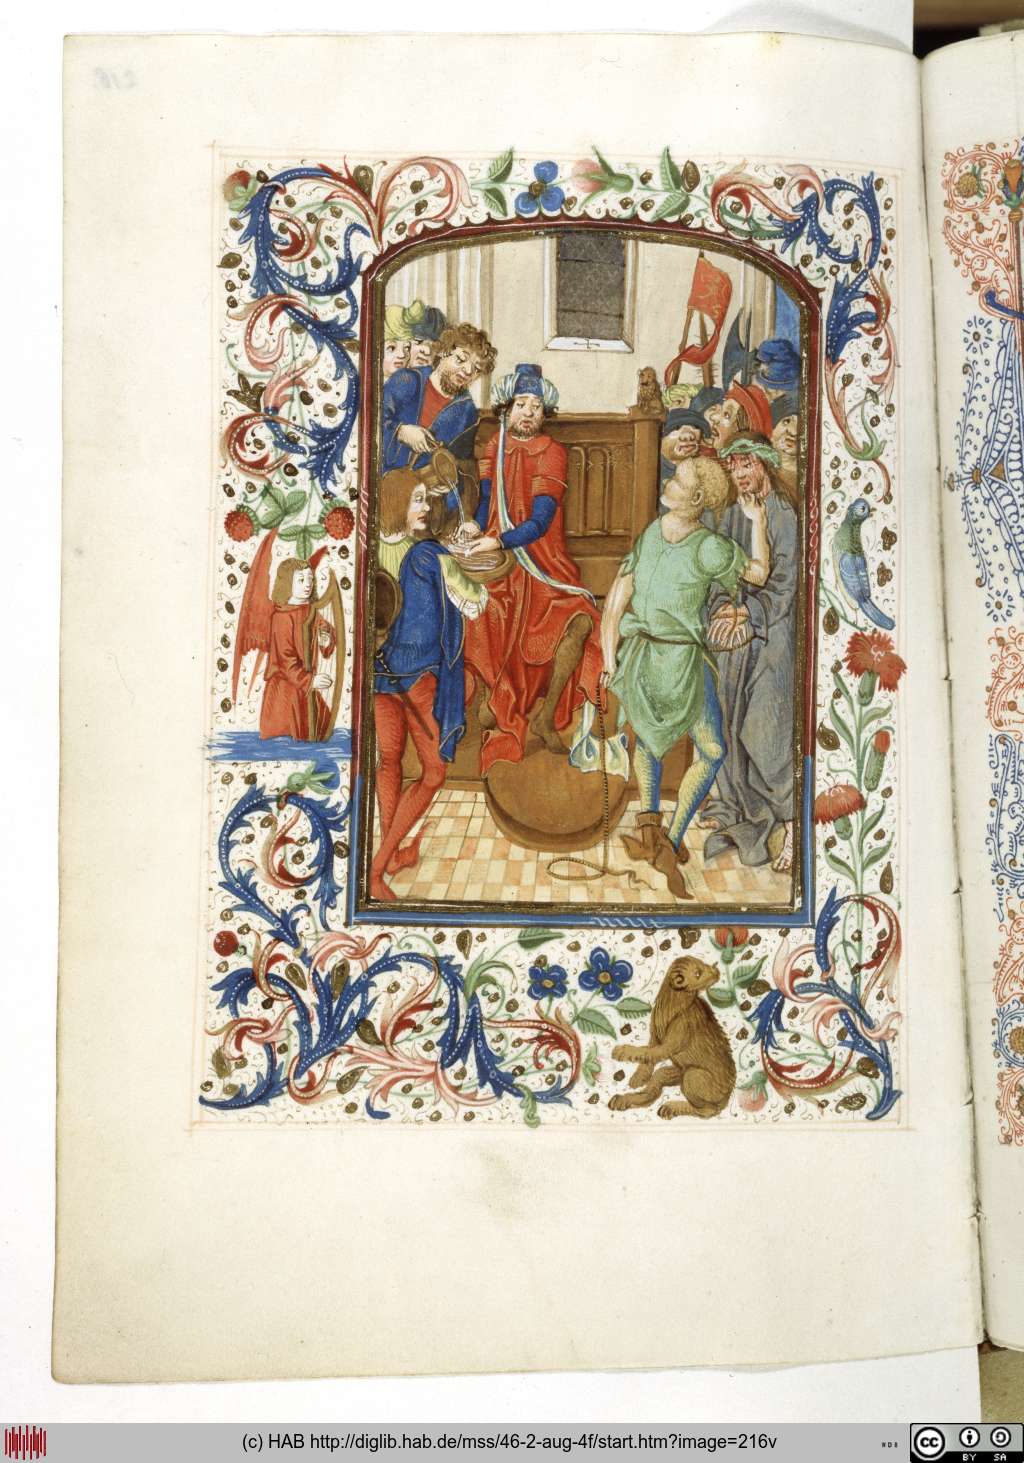 (c) HAB http://diglib.hab.de/mss/46-2-aug-4f/start.htm?image=216v
cc
BY SA